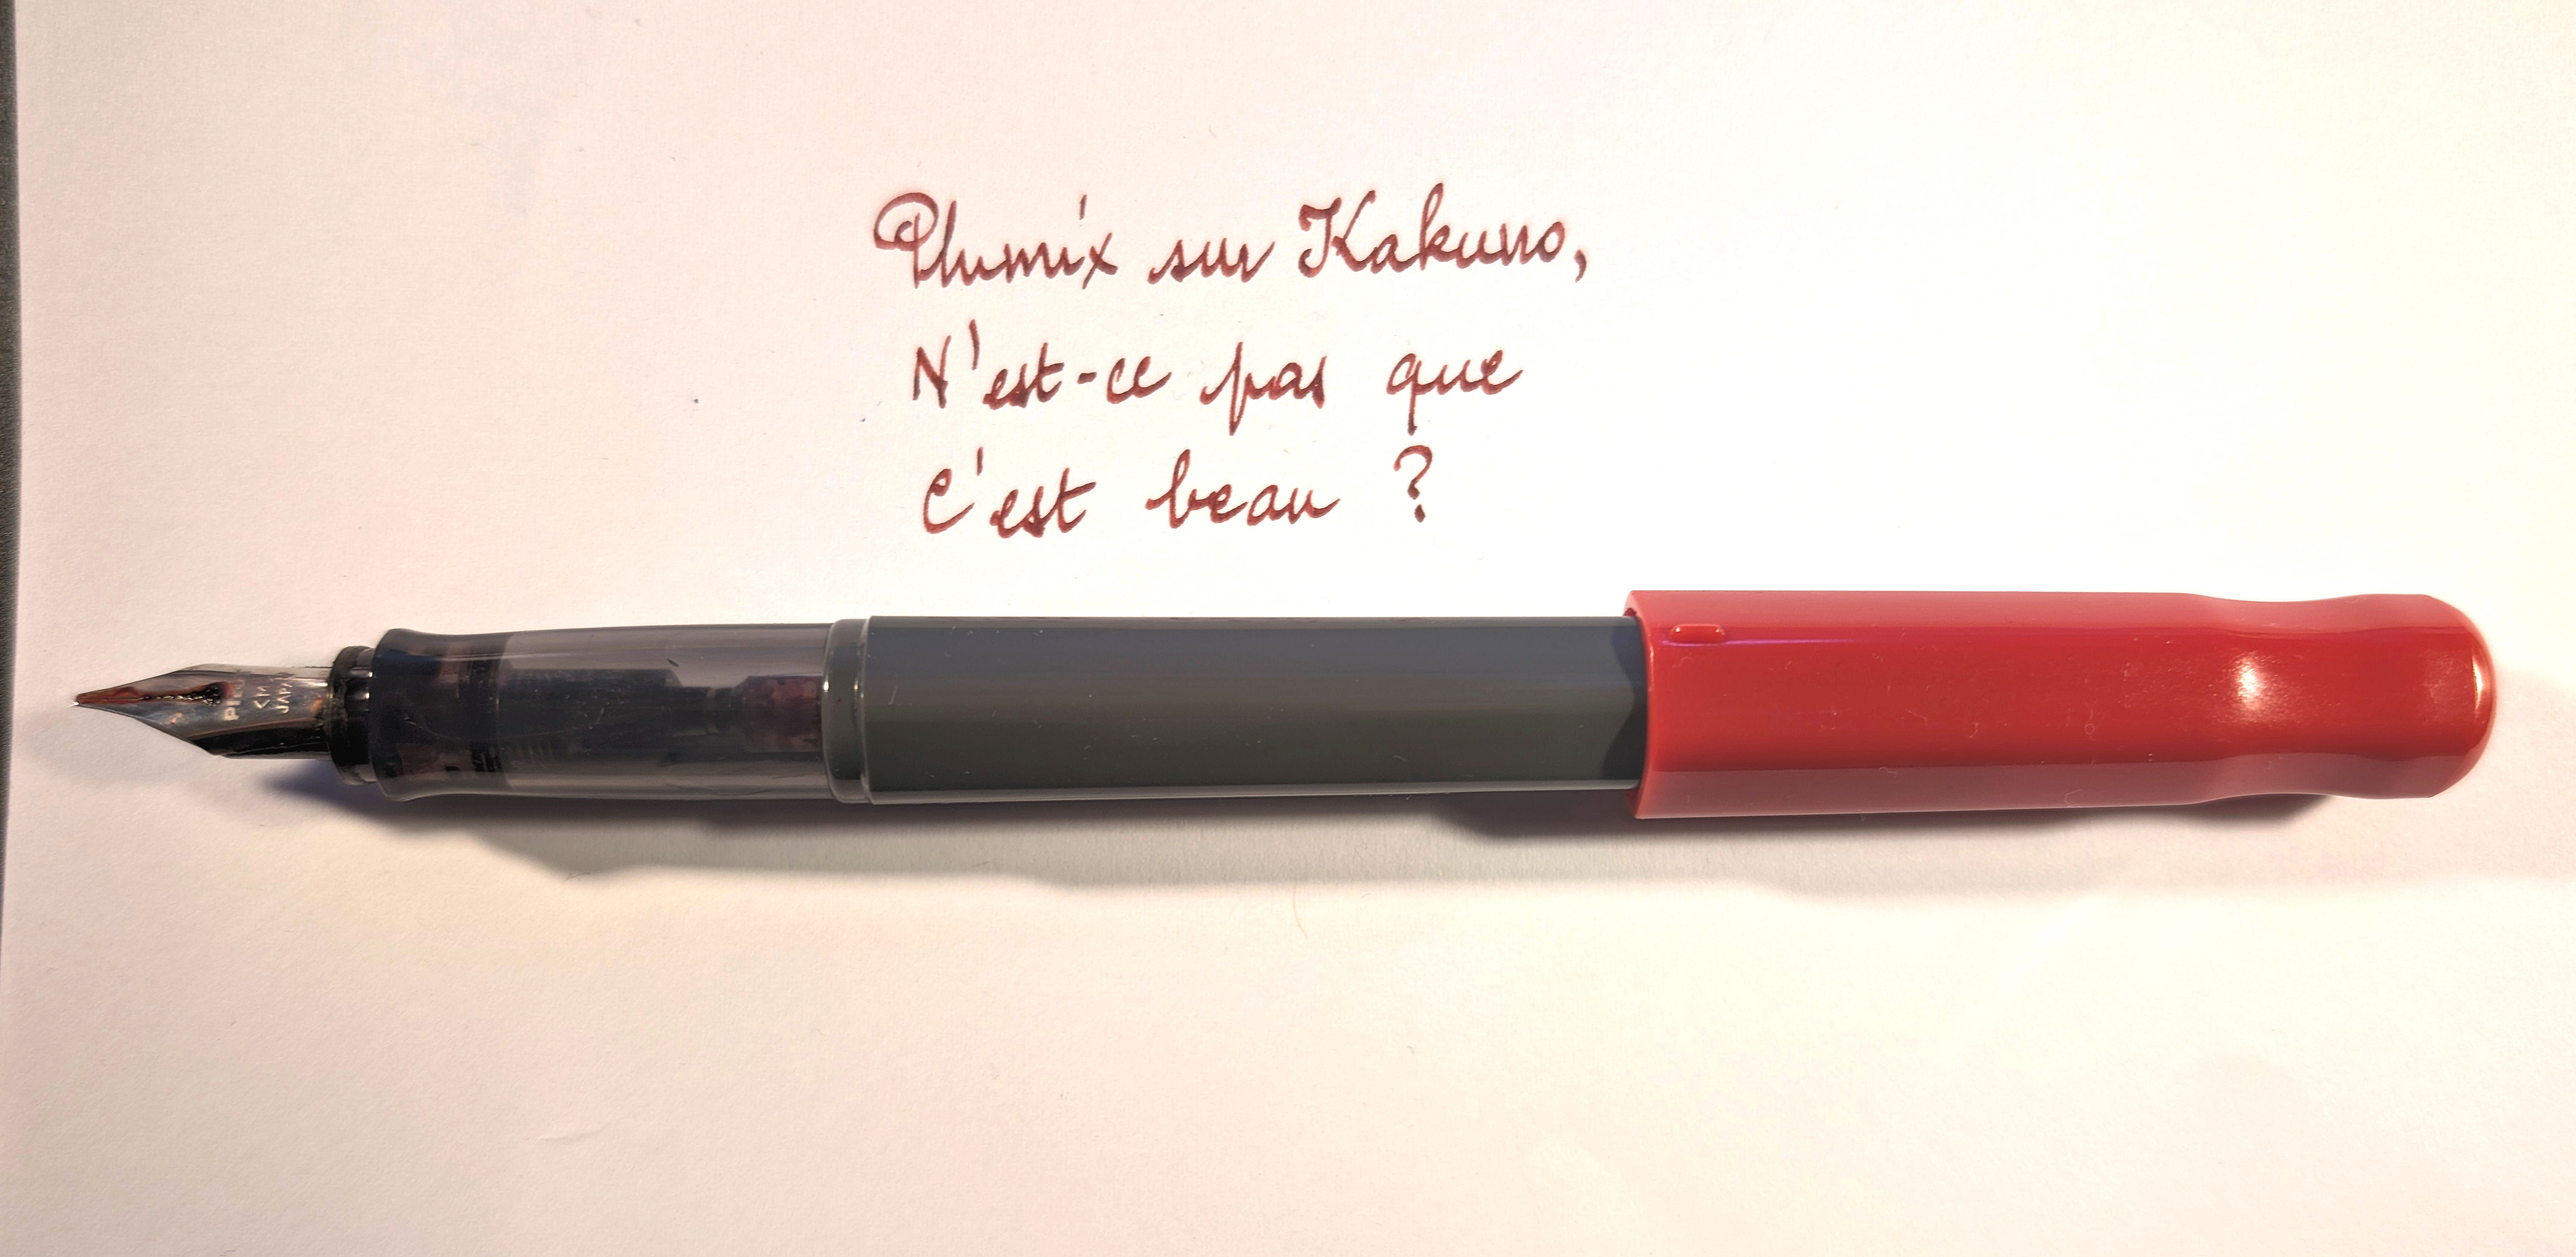 Plumix sur Kakuno,
N'est-ce pas que
C'est beau ?
<M>
JAPAN